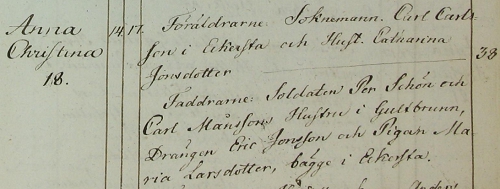 Anna 14. 17. Föräldrarne Soknemann. Carl Carls-
Christina son i Eckersta och Hust. Catharina 38
18. Jonsdotter
Faddrarne: Soldaten Per Schön och
Carl Månssons Hustru i Gullbrunn,
Drängen Eric Jonsson och Pigan Ma-
ria Larsdotter, bägge i Eckersta.